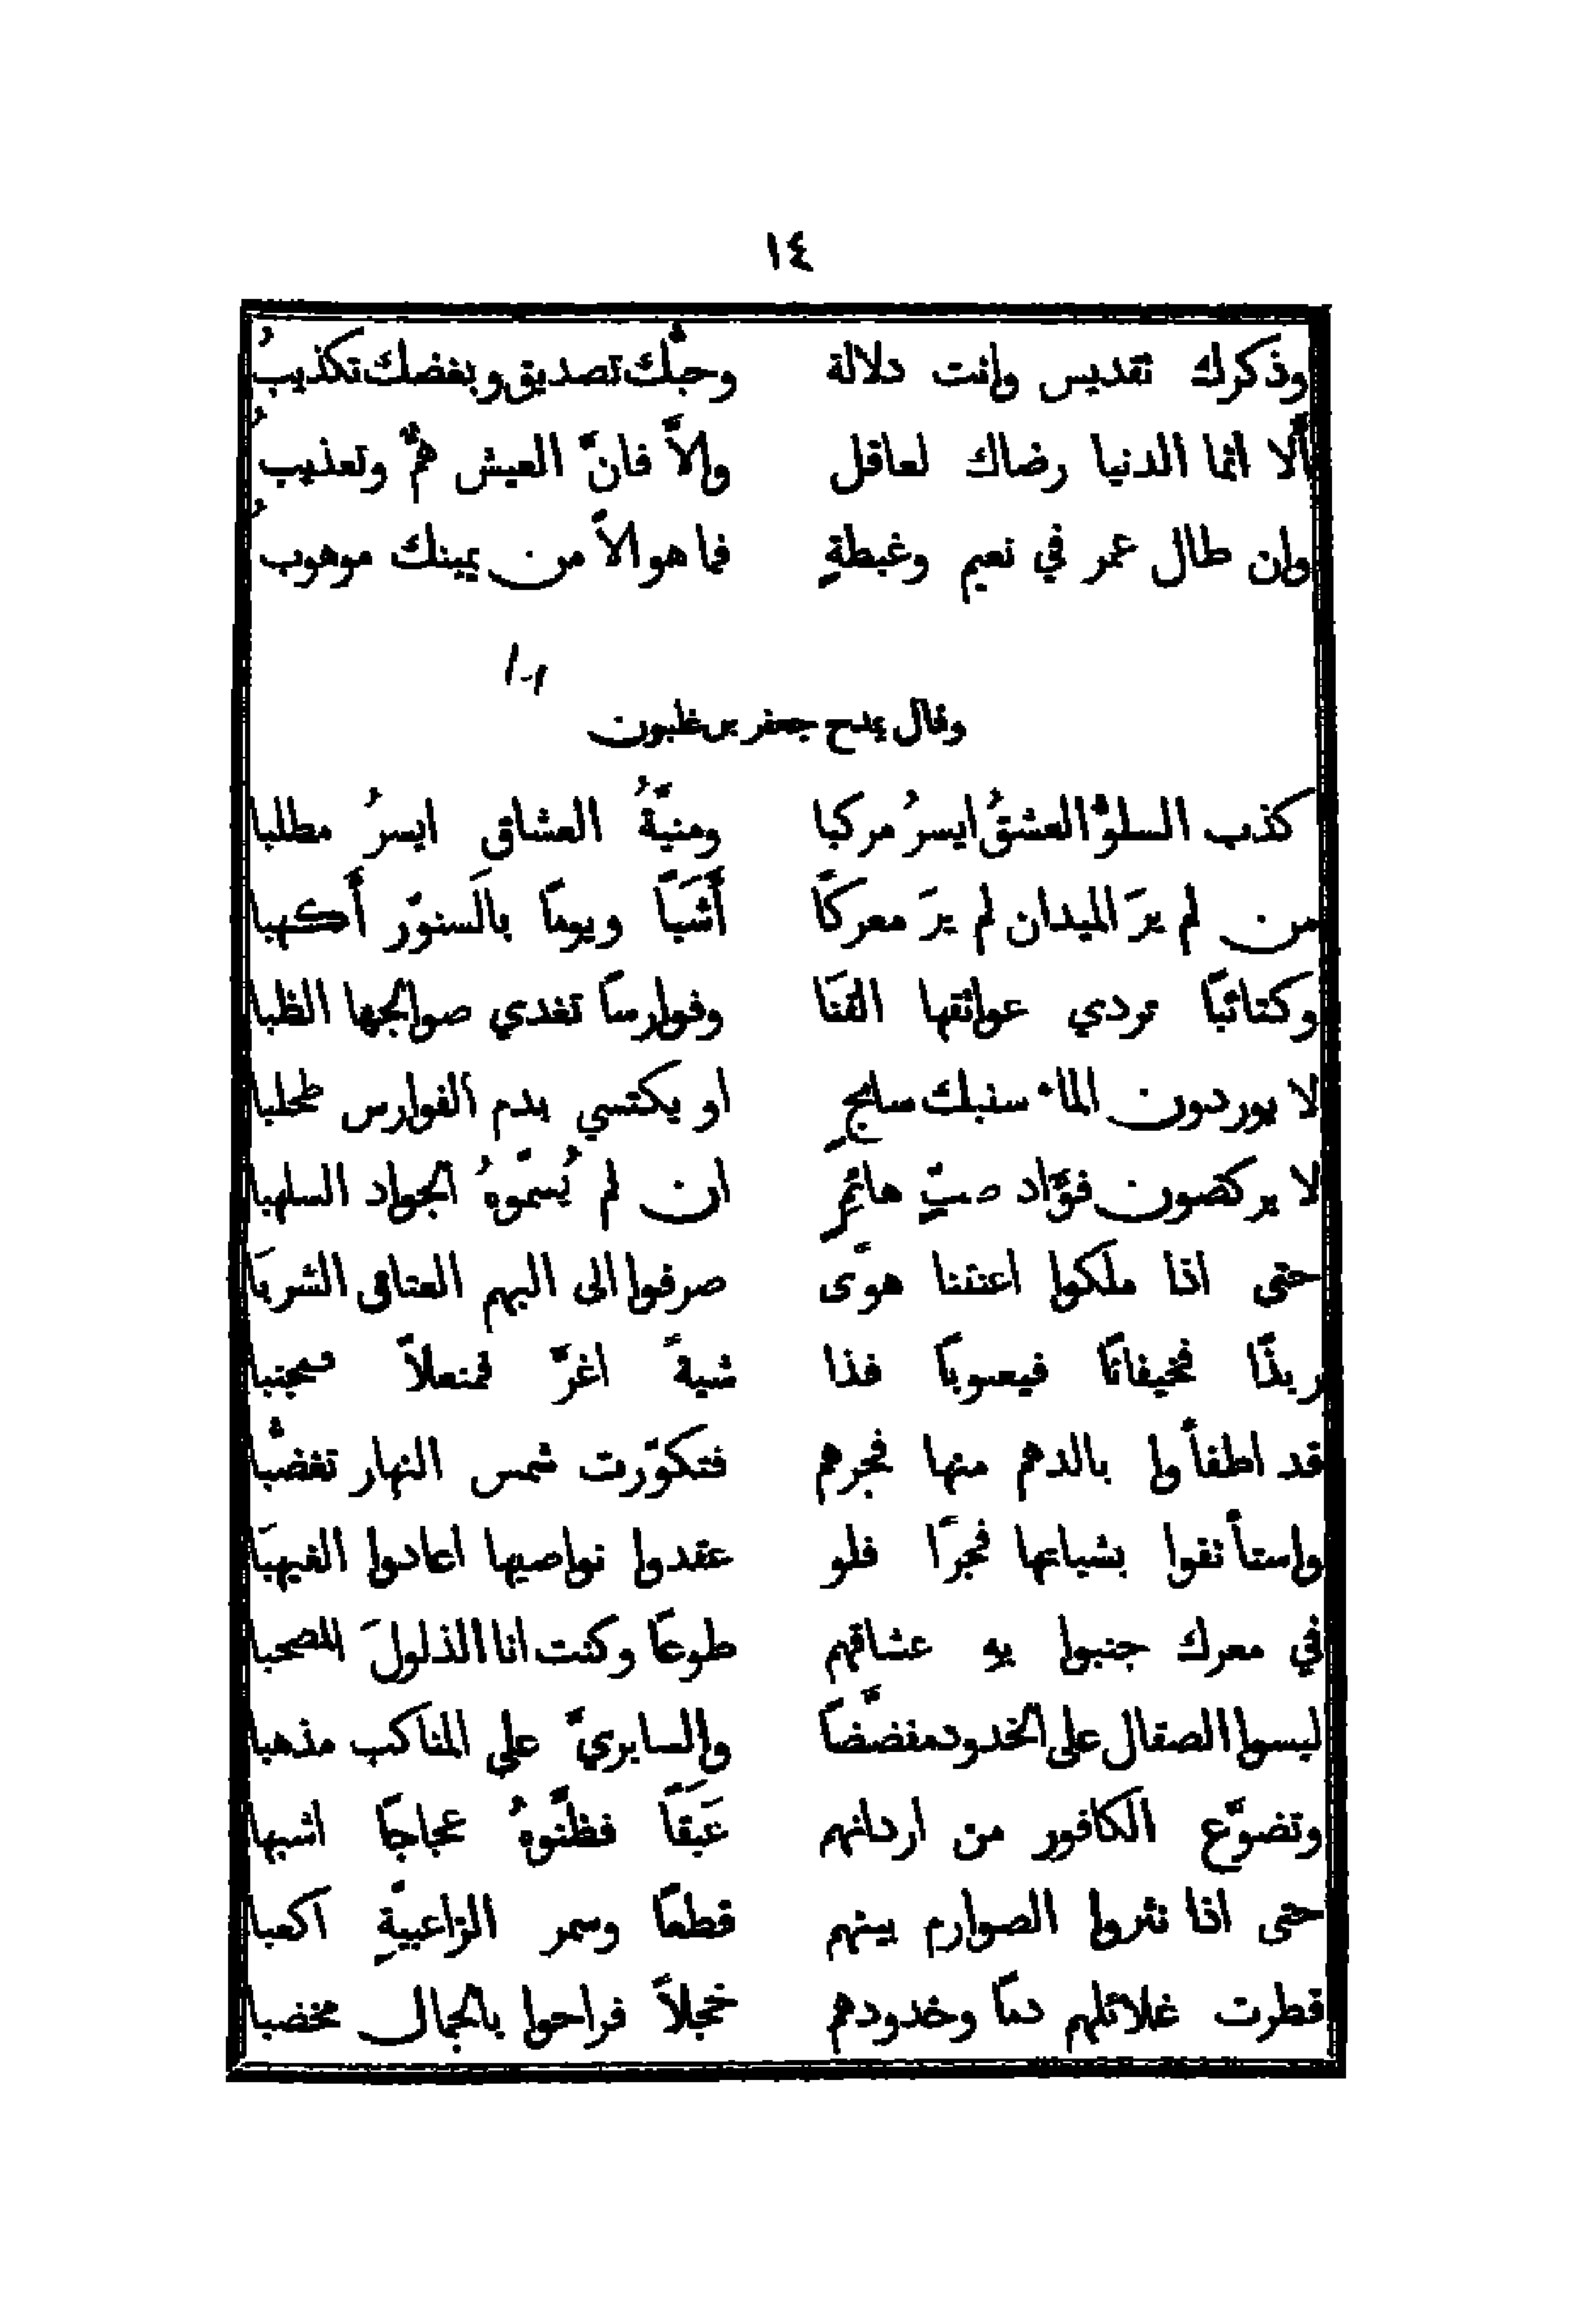 ١٤
وذكرك تقديس وانت دلالة وحبُّك تصديق وبغضك تكذيبُ
ألا انما الدنيا رضاك لعاقل والاَّ فانَّ العيش همٌّ وتعذيبُ
وان طال عمر في نعيم وغبطةٍ فما هو الاَّ من يمينك موهوبُ
وقال يمدح جعفر بن غلبون
كذب السلوُّ العشقُ ايسرُ مركبا ومنيَّةُ العشاق ايسرُ مطلبا
من لم يرَ الميدان لم يرَ معركًا أَشَبًا ويومًا بالسنوَّر أَكهبا
وكتائبًا تردي عواتقها القنَا وفوارسًا تغدي صوالجها الظبا
لا يوردون الماء سنبك سابحٍ او يكتسي بدم الفوارس طحلبا
لا يركضون فؤاد صبٍّ هائمٍ ان لم يُسمّوهُ الجواد السلهبا
حتى اذا ملكوا اعنتنا هوًى صرفوا الى البهم العتاق الشربَا
ربذًا فخيفانًا فيعبوبًا فذا شيةً اغرَّ فمنعلاً فمجنبا
قد اطفأوا بالدهم منها فجرهم فتكوّرت شمس النهار تغضُّبا
واستأنفوا بشياتها فجرًا فلو عقدوا نواصيها اعادوا الغيهبَا
في معرك جنبوا به عشاقهم طوعًا وكنت انا الذلولَ المصحبا
لبسوا الصقال على الخدود مفضَّضًا والسابريَّ على المناكب مذهبا
وتضوَّع الكافور من اردانهم عَبَقًا فظنُّوهُ عجاجًا اشهبا
حتى اذا نثروا الصوارم بينهم قطعًا وسمر الزاعبيَّةِ اكعبا
قطرت غلائلهم دمًا وخدودهم خجلاً فراحوا بالجمال مخضبا